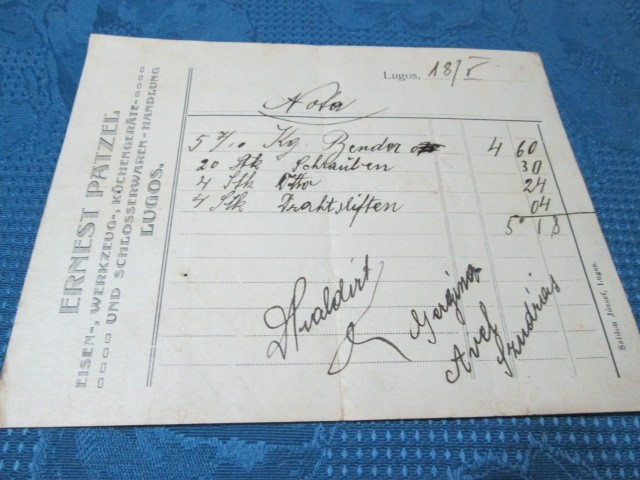 ERNEST PATZEL
EISEN-, WERKZEUG-, KÜCHENGERÄTE-
UND SCHLOSSERWAREN-HANDLUNG
LUGOS.
Lugos, 18/V.
Nota
5 7/10 Kg. Bender 4 60
20 Stk Schrauben 30
4 Stk 24
4 Stk Drahtstiften 04
5 18
Szidon József, Lugos.